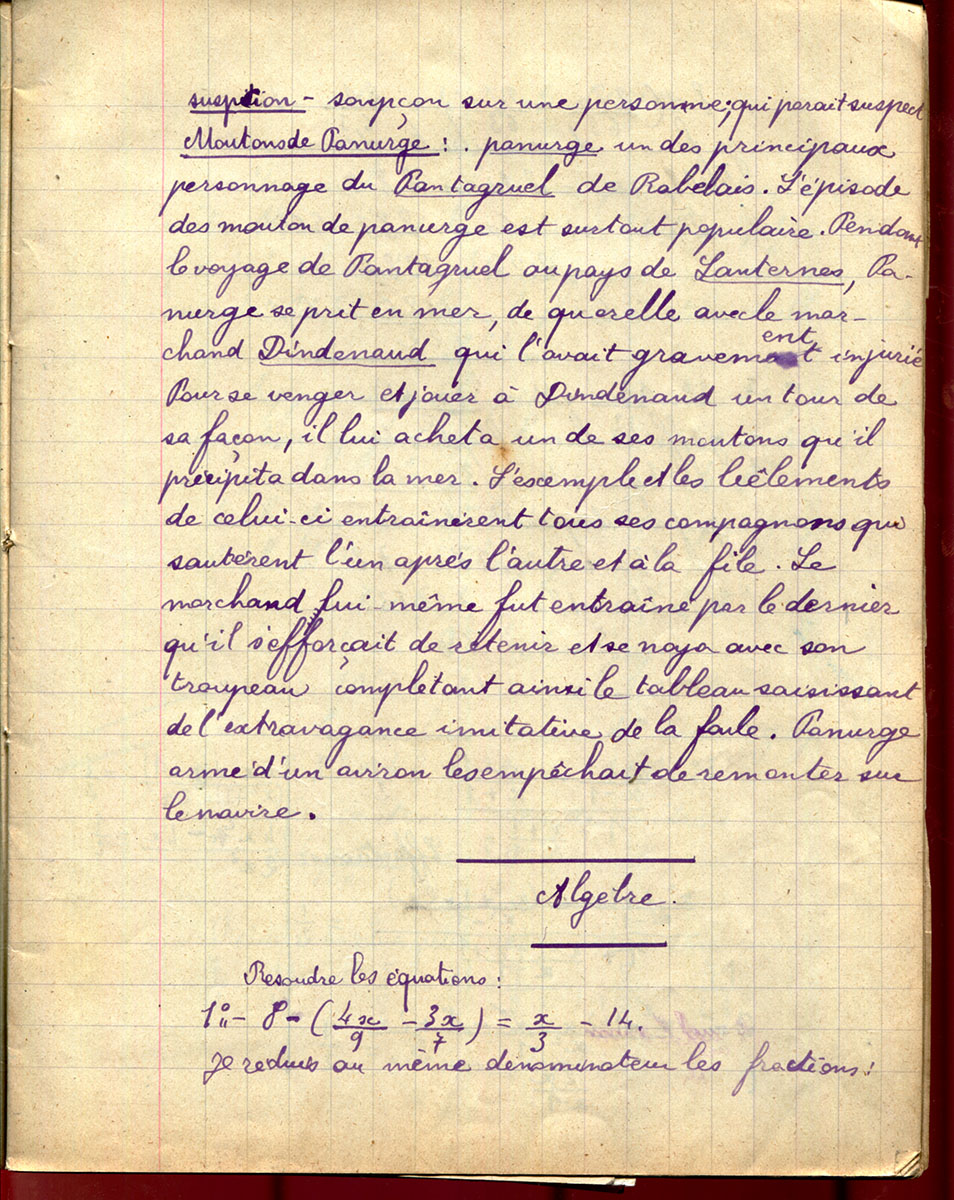 suspition - soupçon sur une personne; qui parait suspect
Moutons de Panurge : . panurge un des principaux
personnage du Pantagruel de Rabelais. L'épisode
des mouton de panurge est surtout populaire. Pendant
le voyage de Pantagruel au pays de Lanternes, Pa-
nurge se prit en mer, de querelle avec le mar-
chand Dindenaud qui l'avait gravement injurié
Pour se venger et jouer à Dindenaud un tour de
sa façon, il lui acheta un de ses moutons qu'il
précipita dans la mer. L'exemple et les bêlements
de celui-ci entraînèrent tous ses compagnons qui
sautèrent l'un après l'autre et à la file. Le
marchand lui-même fut entraîné par le dernier
qu'il s'efforçait de retenir et se noya avec son
troupeau complétant ainsi le tableau saisissant
de l'extravagance imitative de la foule. Panurge
armé d'un aviron les empêchait de remonter sur
le navire.
Algèbre.
Resoudre les équations :
1° - 8 - (4x/9 - 3x/7) = x/3 - 14.
Je reduis au même dénominateur les fractions :